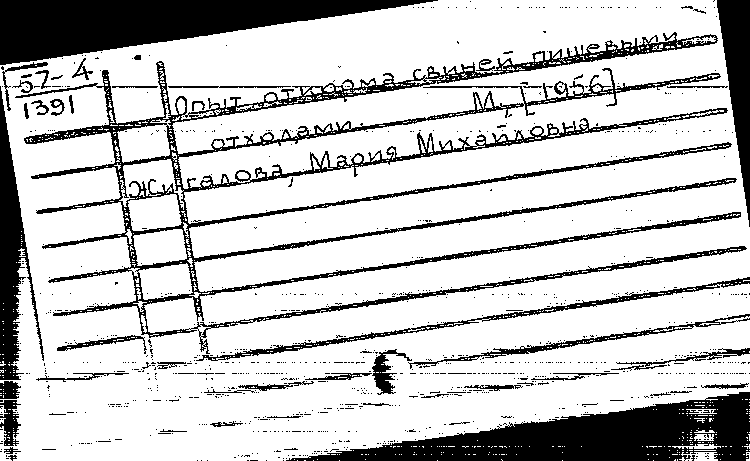 57-4
1391
Опыт откорма свиней пищевыми
отходами. М., [1956].
Жигалова, Мария Михайловна.